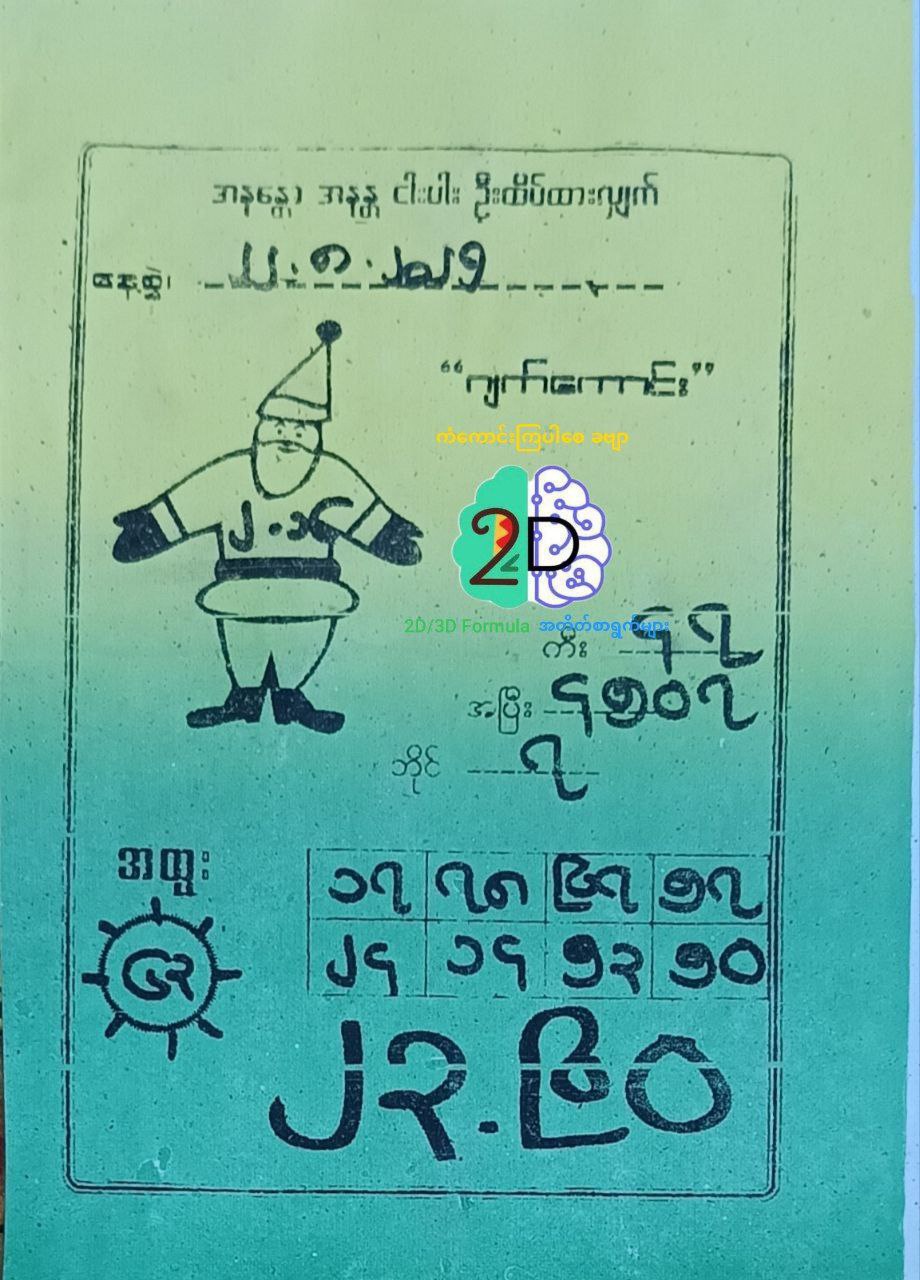 အနန္တော အနန္တ ငါးပါး ဦးထိပ်ထားလျှက်
နေ့စွဲ၊ ၂၂.၈.၂၀၂၅
“ဂျက်ကောင်း”
ကံကောင်းကြပါစေ ခဗျာ
2D
2D/3D Formula အတိတ်စာရွက်များ
၂.၁၄
ကီး ၄၇
အပြီး ၄၅၀၇
ဘိုင် ၇
အထူး
၆၃
၁၇ ၇၈ ၉၇ ၅၇
၂၄ ၁၄ ၅၃ ၅၀
၂၃.၉၀